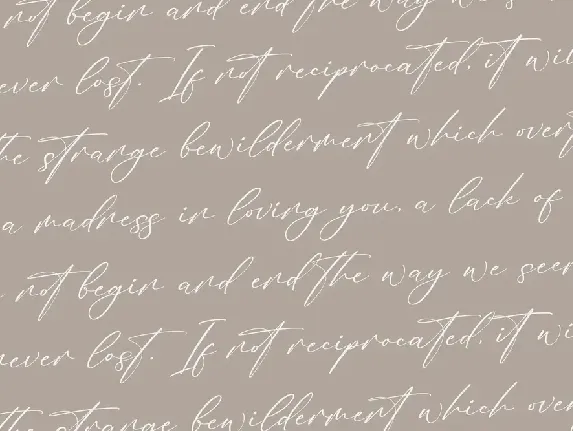 not begin and end the way we s
ever lost. If not reciprocated, it wil
the strange bewilderment which over
a madness in loving you, a lack of
not begin and end the way we seem
never lost. If not reciprocated, it wi
the strange bewilderment which over